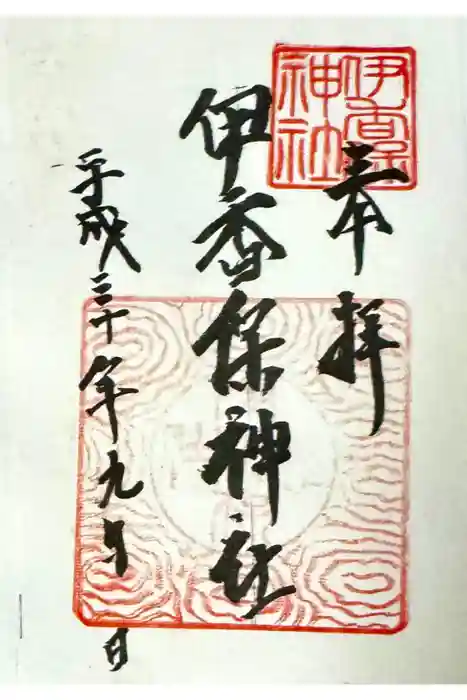 奉拝
伊香保神社
伊香保神社
平成三十年九月
日